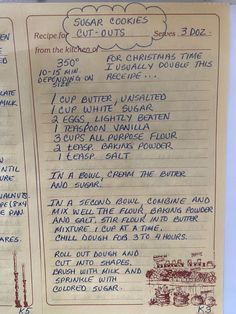 SUGAR COOKIES
Recipe for CUT-OUTS Serves 3 DOZ.
from the kitchen of
350° FOR CHRISTMAS TIME
10-15 MIN. I USUALLY DOUBLE THIS
DEPENDING ON RECIPE...
SIZE
1 CUP BUTTER, UNSALTED
1 CUP WHITE SUGAR
2 EGGS, LIGHTLY BEATEN
1 TEASPOON VANILLA
3 CUPS ALL PURPOSE FLOUR
2 TEASP. BAKING POWDER
1 TEASP. SALT
IN A BOWL, CREAM THE BUTTER
AND SUGAR.
IN A SECOND BOWL, COMBINE AND
MIX WELL THE FLOUR, BAKING POWDER
AND SALT. STIR FLOUR INTO BUTTER
MIXTURE 1 CUP AT A TIME.
CHILL DOUGH FOR 3 TO 4 HOURS.
ROLL OUT DOUGH AND
CUT INTO SHAPES.
BRUSH WITH MILK AND
SPRINKLE WITH
COLORED SUGAR.
K5 K3